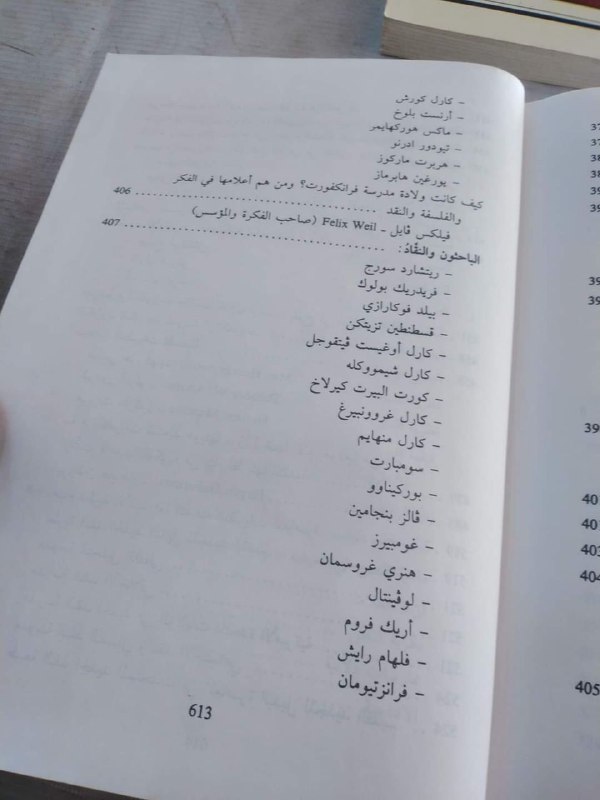 - كارل كورش
- أرنست بلوخ
- ماكس هوركهايمر
- تيودور ادرنو
- هربرت ماركوز
- يورغين هابرماز
كيف كانت ولادة مدرسة فرانكفورت؟ ومن هم أعلامها في الفكر
والفلسفة والنقد ........................ 406
فيلكس ڤايل - Felix Weil (صاحب الفكرة والمؤسس)
الباحثون والنقّاد: ........................ 407
- ريتشارد سورج
- فريدريك بولوك
- بيلد فوكارازي
- قسطنطين تزيتكن
- كارل أوغيست ڤيتفوجل
- كارل شيمووكله
- كورت البيرت كيرلاخ
- كارل غروونبيرغ
- كارل منهايم
- سومبارت
- بوركيناوو
- ڤالز بنجامين
- غومبيرز
- هنري غروسمان
- لوڤينتال
- أريك فروم
- فلهام رايش
- فرانزتيومان
613
39
40
401
403
404
405